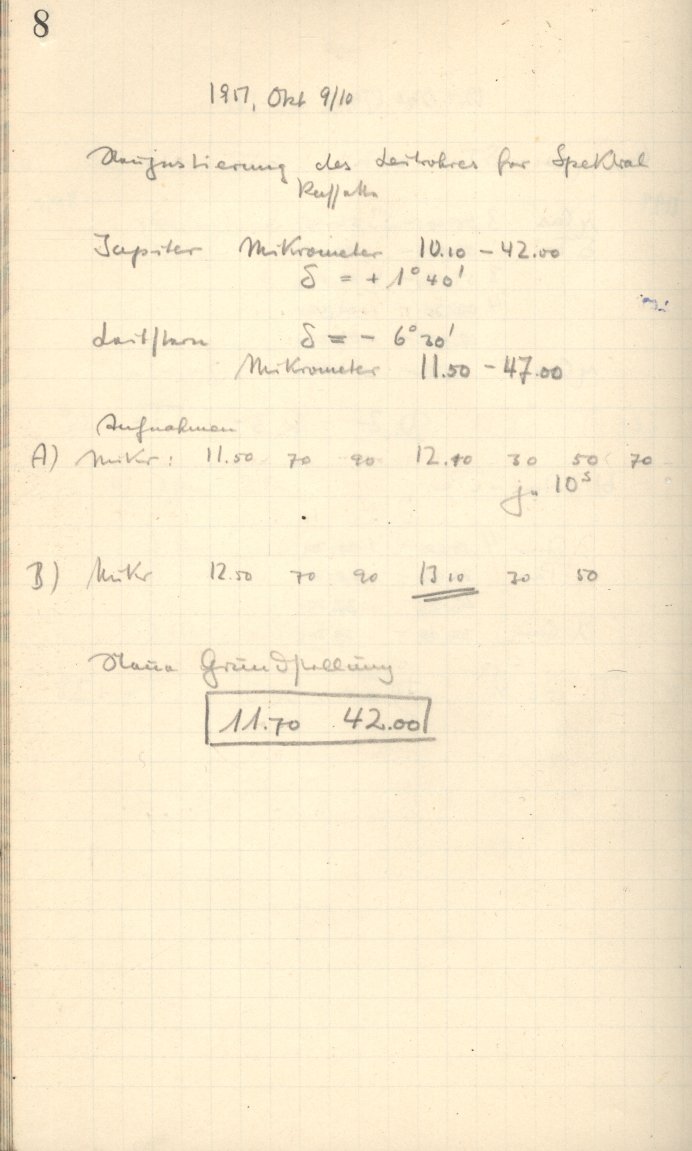 8
1951, Okt 9/10
Neujustierung des Leitrohres für Spektral
Kassette
Jupiter Mikrometer 10.10 – 42.00
δ = + 1° 40'
Leitstern δ = – 6° 30'
Mikrometer 11.50 – 47.00
Aufnahmen
A) Mikr: 11.50 70 90 12.10 30 50 70
je 10s
B) Mikr 12.50 70 90 13 10 30 50
Neue Grundstellung
11.70 42.00